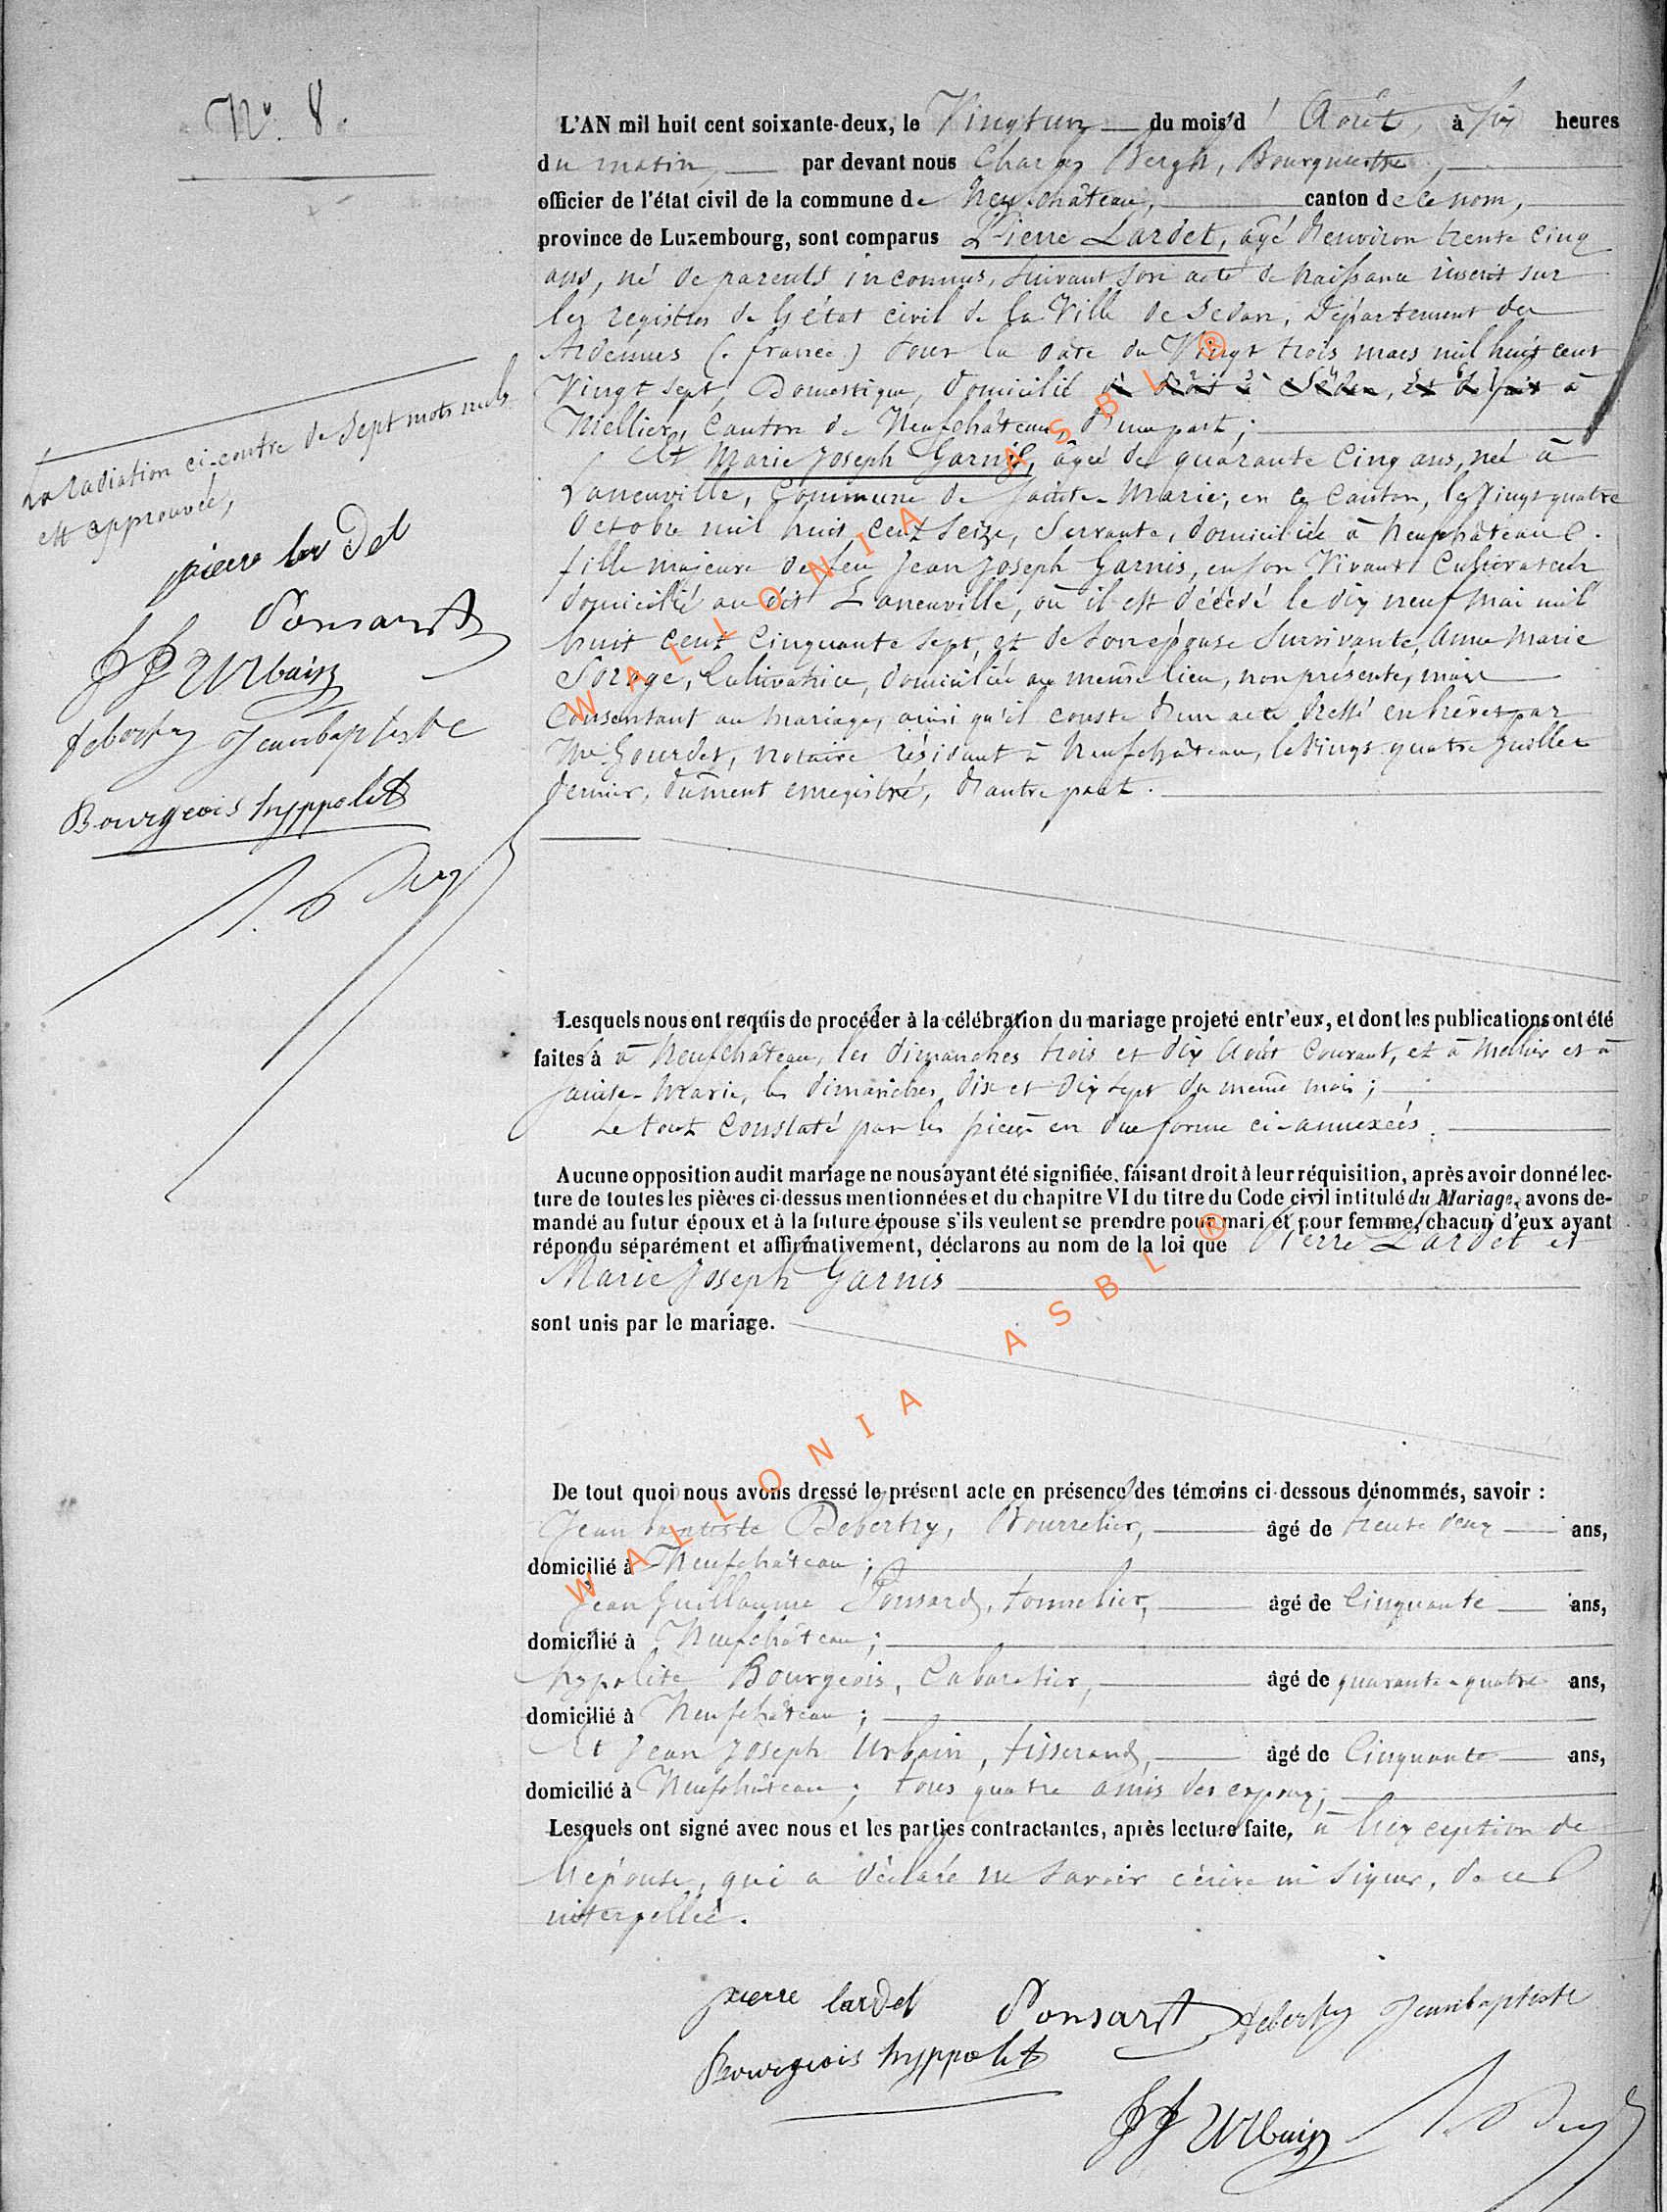 N° 8.
L'AN mil huit cent soixante-deux, le Vingt un du mois d'Août, à six heures
du matin, par devant nous Charles Bergh, Bourgmestre,
officier de l'état civil de la commune de Neufchâteau, canton de ce nom,
province de Luxembourg, sont comparus Pierre Lardet, âgé d'environ trente cinq
ans, né de parents inconnus, suivant son acte de naissance inscrit sur
les registres de l'état civil de la Ville de Sedan, Département des
Ardennes (france) sous la date du Vingt trois mars mil huit cent
Vingt sept, Domestique, domicilié de droit à Sedan, et de fait à
Mellier, Canton de Neufchâteau, d'une part;
Et Marie Joseph Garnis, âgée de quarante Cinq ans, née à
Laneuville, Commune de Sainte-Marie, en ce Canton, le Vingt quatre
Octobre mil huit cent seize, Servante, domiciliée à Neufchâteau.
fille majeure de feu Jean Joseph Garnis, en son Vivant Cultivateur
domicilié au dit Laneuville, où il est décédé le dix neuf Mai mil
huit cent Cinquante sept, et de son épouse Survivante, Anne Marie
Cultivatrice, domiciliée au même lieu, non présente, mais
Consentant au mariage, ainsi qu'il conste d'un acte dressé en brevet par
Me Gourdet, notaire résidant à Neufchâteau, le Vingt quatre Juillet
dernier, dûment enregistré, d'autre part.
La radiation ci-contre de sept mots nuls
est approuvée,
pierre lardet
Ponsart
JJ Urbain
deberty Jeanbaptiste
Bourgeois hyppolit
Lesquels nous ont requis de procéder à la célébration du mariage projeté entr'eux, et dont les publications ont été
faites à à Neufchâteau, les dimanches trois et dix Août Courant, et à Mellier et à
Sainte-Marie, les dimanches dix et dix sept du même mois;
Le tout Constaté par les pièces en due forme ci-annexées.
Aucune opposition audit mariage ne nous ayant été signifiée, faisant droit à leur réquisition, après avoir donné lec-
ture de toutes les pièces ci-dessus mentionnées et du chapitre VI du titre du Code civil intitulé du Mariage, avons de-
mandé au futur époux et à la future épouse s'ils veulent se prendre pour mari et pour femme, chacun d'eux ayant
répondu séparément et affirmativement, déclarons au nom de la loi que Pierre Lardet et
Marie Joseph Garnis
sont unis par le mariage.
De tout quoi nous avons dressé le présent acte en présence des témoins ci-dessous dénommés, savoir :
Jean baptiste Deberty, Bourrelier, âgé de trente deux ans,
domicilié à Neufchâteau;
Jean Guillaume Ponsard, tonnelier, âgé de Cinquante ans,
domicilié à Neufchâteau;
hypolite Bourgeois, Cabaretier, âgé de quarante-quatre ans,
domicilié à Neufchâteau;
Et Jean Joseph Urbain, tisserand, âgé de Cinquante ans,
domicilié à Neufchâteau; tous quatre amis des époux;
Lesquels ont signé avec nous et les parties contractantes, après lecture faite, à l'exception de
l'épouse, qui a déclaré ne savoir écrire ni signer, de ce
interpellée.
pierre lardet Ponsart deberty Jeanbaptiste
Bourgeois hyppolit
JJ Urbain
WALLONIA ASBL ®
WALLONIA ASBL ®